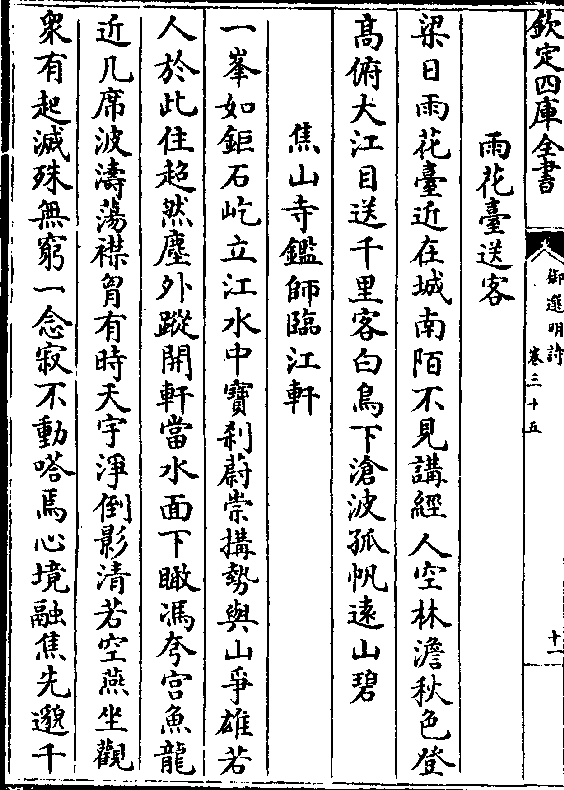 欽定四庫全書
御選明詩
卷三十五
十一
雨花臺送客
梁日雨花臺近在城南陌不見講經人空林澹秋色登
髙俯大江目送千里客白鳥下滄波孤帆遠山碧
焦山寺鑑師臨江軒
一峯如鉅石屹立江水中寶刹蔚崇搆勢與山爭雄若
人於此住超然塵外蹤開軒當水面下瞰馮夸宫魚龍
近几席波濤蕩襟胷有時天宇淨倒影清若空燕坐觀
衆有起滅殊無窮一念寂不動嗒焉心境融焦先邈千